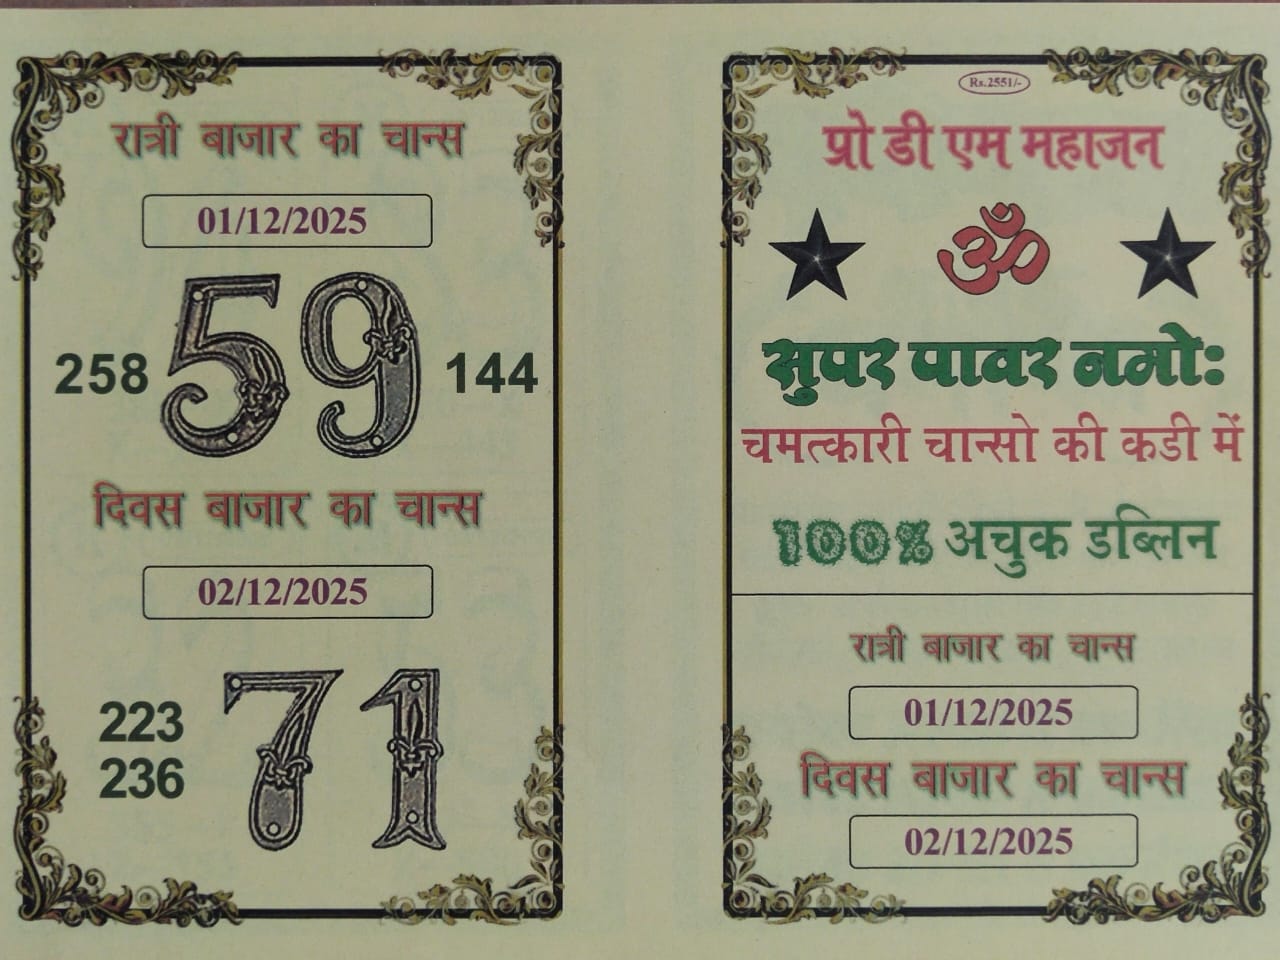 रात्री बाजार का चान्स
01/12/2025
258 59 144
दिवस बाजार का चान्स
02/12/2025
223
236
71
Rs.2551/-
प्रो डी एम महाजन
ॐ
सुपर पावर नमोः
चमत्कारी चान्सो की कडी में
100% अचुक डब्लिन
रात्री बाजार का चान्स
01/12/2025
दिवस बाजार का चान्स
02/12/2025